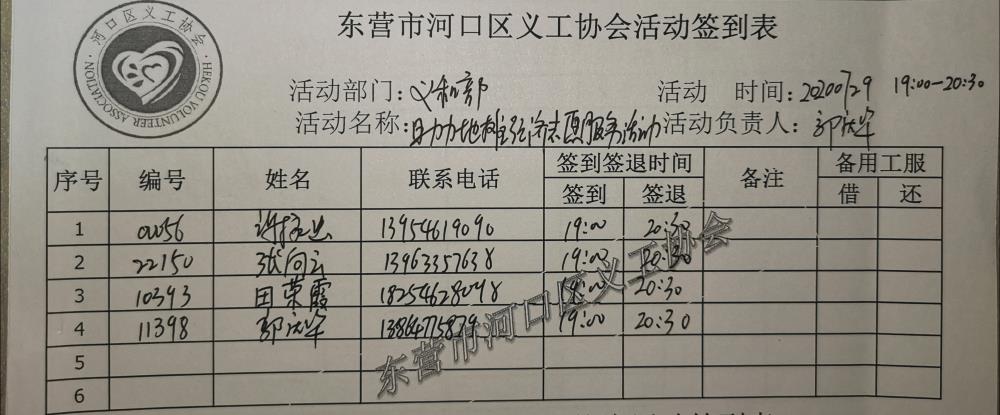 河口区义工协会
HEKOU VOLUNTEER ASSOCIATION
东营市河口区义工协会活动签到表
活动部门: 义和部 活动 时间: 20200729 19:00-20:30
活动名称: 助力地摊经济志愿服务活动 活动负责人:
序号 编号 姓名 联系电话 签到签退时间 备注 备用工服
签到 签退 借 还
1 00056 13954619090 19:00 20:30
2 22150 张向云 13963357638 19:00 20:30
3 10393 田荣霞 18254628098 19:00 20:30
4 11398 13864775879 19:00 20:30
5
6
东营市河口区义工协会